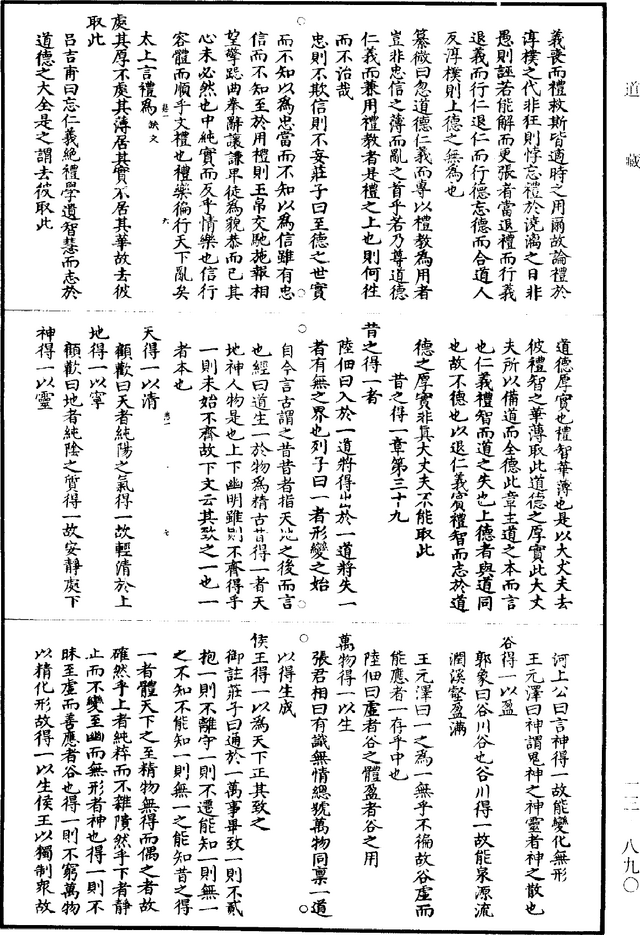 道藏
義喪而禮救斯皆適時之用爾故論禮於
淳樸之代非狂則悖忘禮於澆漓之日非
愚則誣若能解而更張者當退禮而行義
退義而行仁退仁而行德忘德而合道人
反淳樸則上德之無為也
纂微曰忽道德仁義而專以禮教為用者
豈非忠信之薄而亂之首乎若乃尊道德
仁義而兼用禮教者是禮之上也則何徃
而不治哉
忠則不欺信則不妄莊子曰至德之世實
而不知以為忠當而不知以為信雖有忠
信而不知至於用禮則玉帛交馳施報相
望擎跽曲拳辭讓謙卑徒為貌恭而已其
心未必然也中純實而反乎情樂也信行
容體而順乎文禮也禮樂徧行天下亂矣
太上言禮為 缺文
處其厚不處其薄居其實不居其華故去彼
取此
呂吉甫曰忘仁義絕禮學遺智慧而志於
道德之大全是之謂去彼取此
道德厚實也禮智華薄也是以大丈夫去
彼禮智之華薄取此道德之厚實此大丈
夫所以備道而全德此章主道之本而言
也仁義禮智而道之失也上德者與道同
也故不德也以退仁義賓禮智而志於道
德之厚實非真大丈夫不能取此
昔之得一章第三十九
昔之得一者
陸佃曰入於一道將得出於一道將失一
者有無之界也列子曰一者形變之始
自今言古謂之昔昔者指天地之後而言
也經曰道生一於物為精古昔得一者天
地神人物是也上下幽明雖則不齊得乎
一則未始不齊故下文云其致之一也一
者本也
天得一以清
顧歡曰天者純陽之氣得一故輕清於上
地得一以寧
顧歡曰地者純陰之質得一故安靜處下
神得一以靈
河上公曰言神得一故能變化無形
王元澤曰神謂鬼神之神靈者神之散也
谷得一以盈
郭象曰谷川谷也谷川得一故能泉源流
潤溪壑盈滿
王元澤曰一之為一無乎不徧故谷虛而
能應者一存乎中也
陸佃曰虛者谷之體盈者谷之用
萬物得一以生
張君相曰有識無情總號萬物同禀一道
以得生成
侯王得一以為天下正其致之
御註莊子曰通於一萬事畢致一則不貳
抱一則不離守一則不遷能知一則無一
之不知不能知一則無一之能知昔之得
一者體天下之至精物無得而偶之者故
確然乎上者純粹而不雜隤然乎下者靜
止而不變至幽而無形者神也得一則不
昧至虛而善應者谷也得一則不窮萬物
以精化形故得一以生侯王以獨制眾故
一三 八九〇